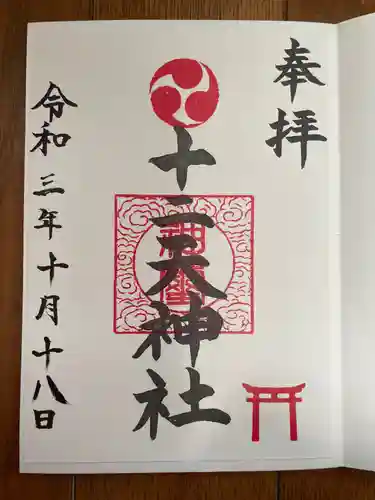 奉拝
十二天神社
令和三年十月十八日